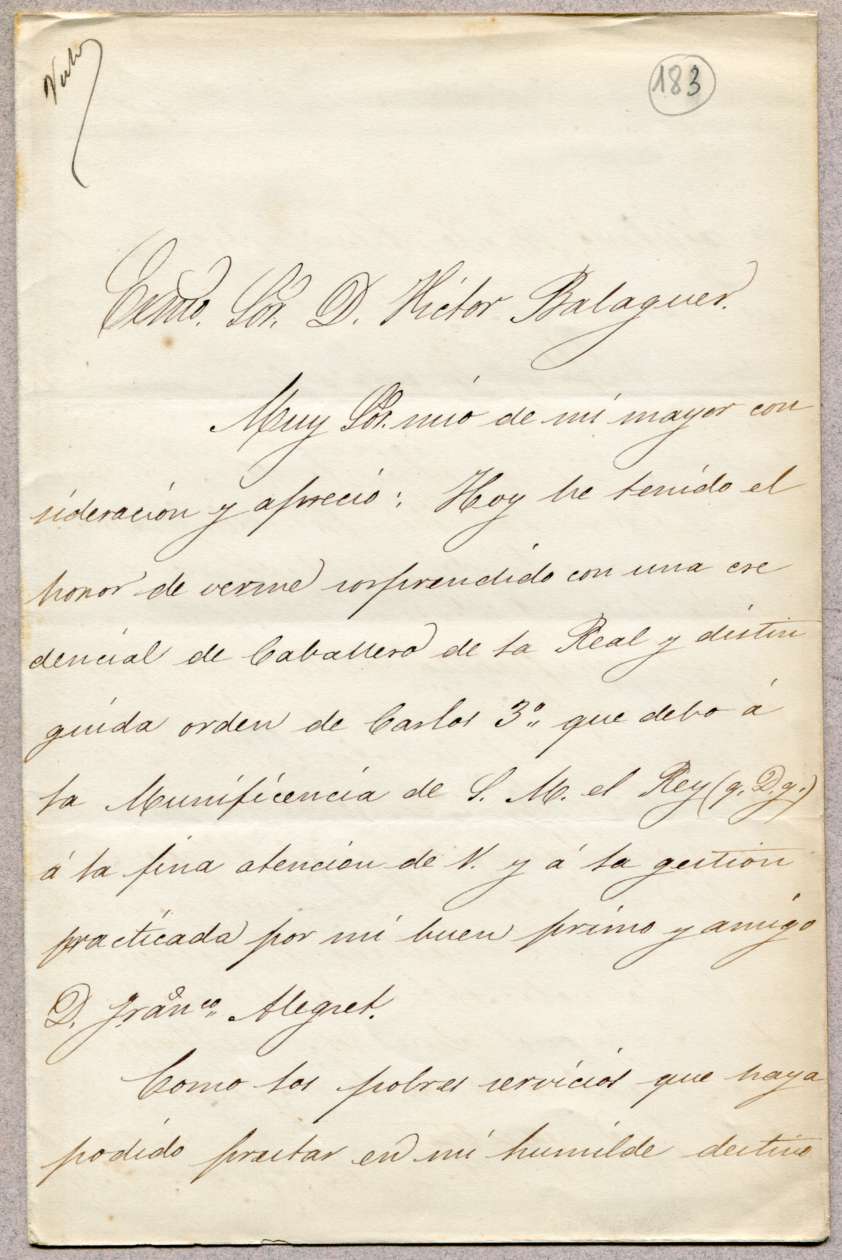 183
Exmo. Sor. D. Víctor Balaguer.
Muy Sor. mío de mi mayor con
sideración y aprecio: Hoy he tenido el
honor de verme sorprendido con una cre
dencial de Caballero de la Real y distin
guida orden de Carlos 3º que debo á
la Munificencia de S. M. el Rey (q. D. g.)
á la fina atención de V. y á la gestión
practicada por mi buen primo y amigo
D. Franco. Alegret.
Como los pobres servicios que haya
podido prestar en mi humilde destino